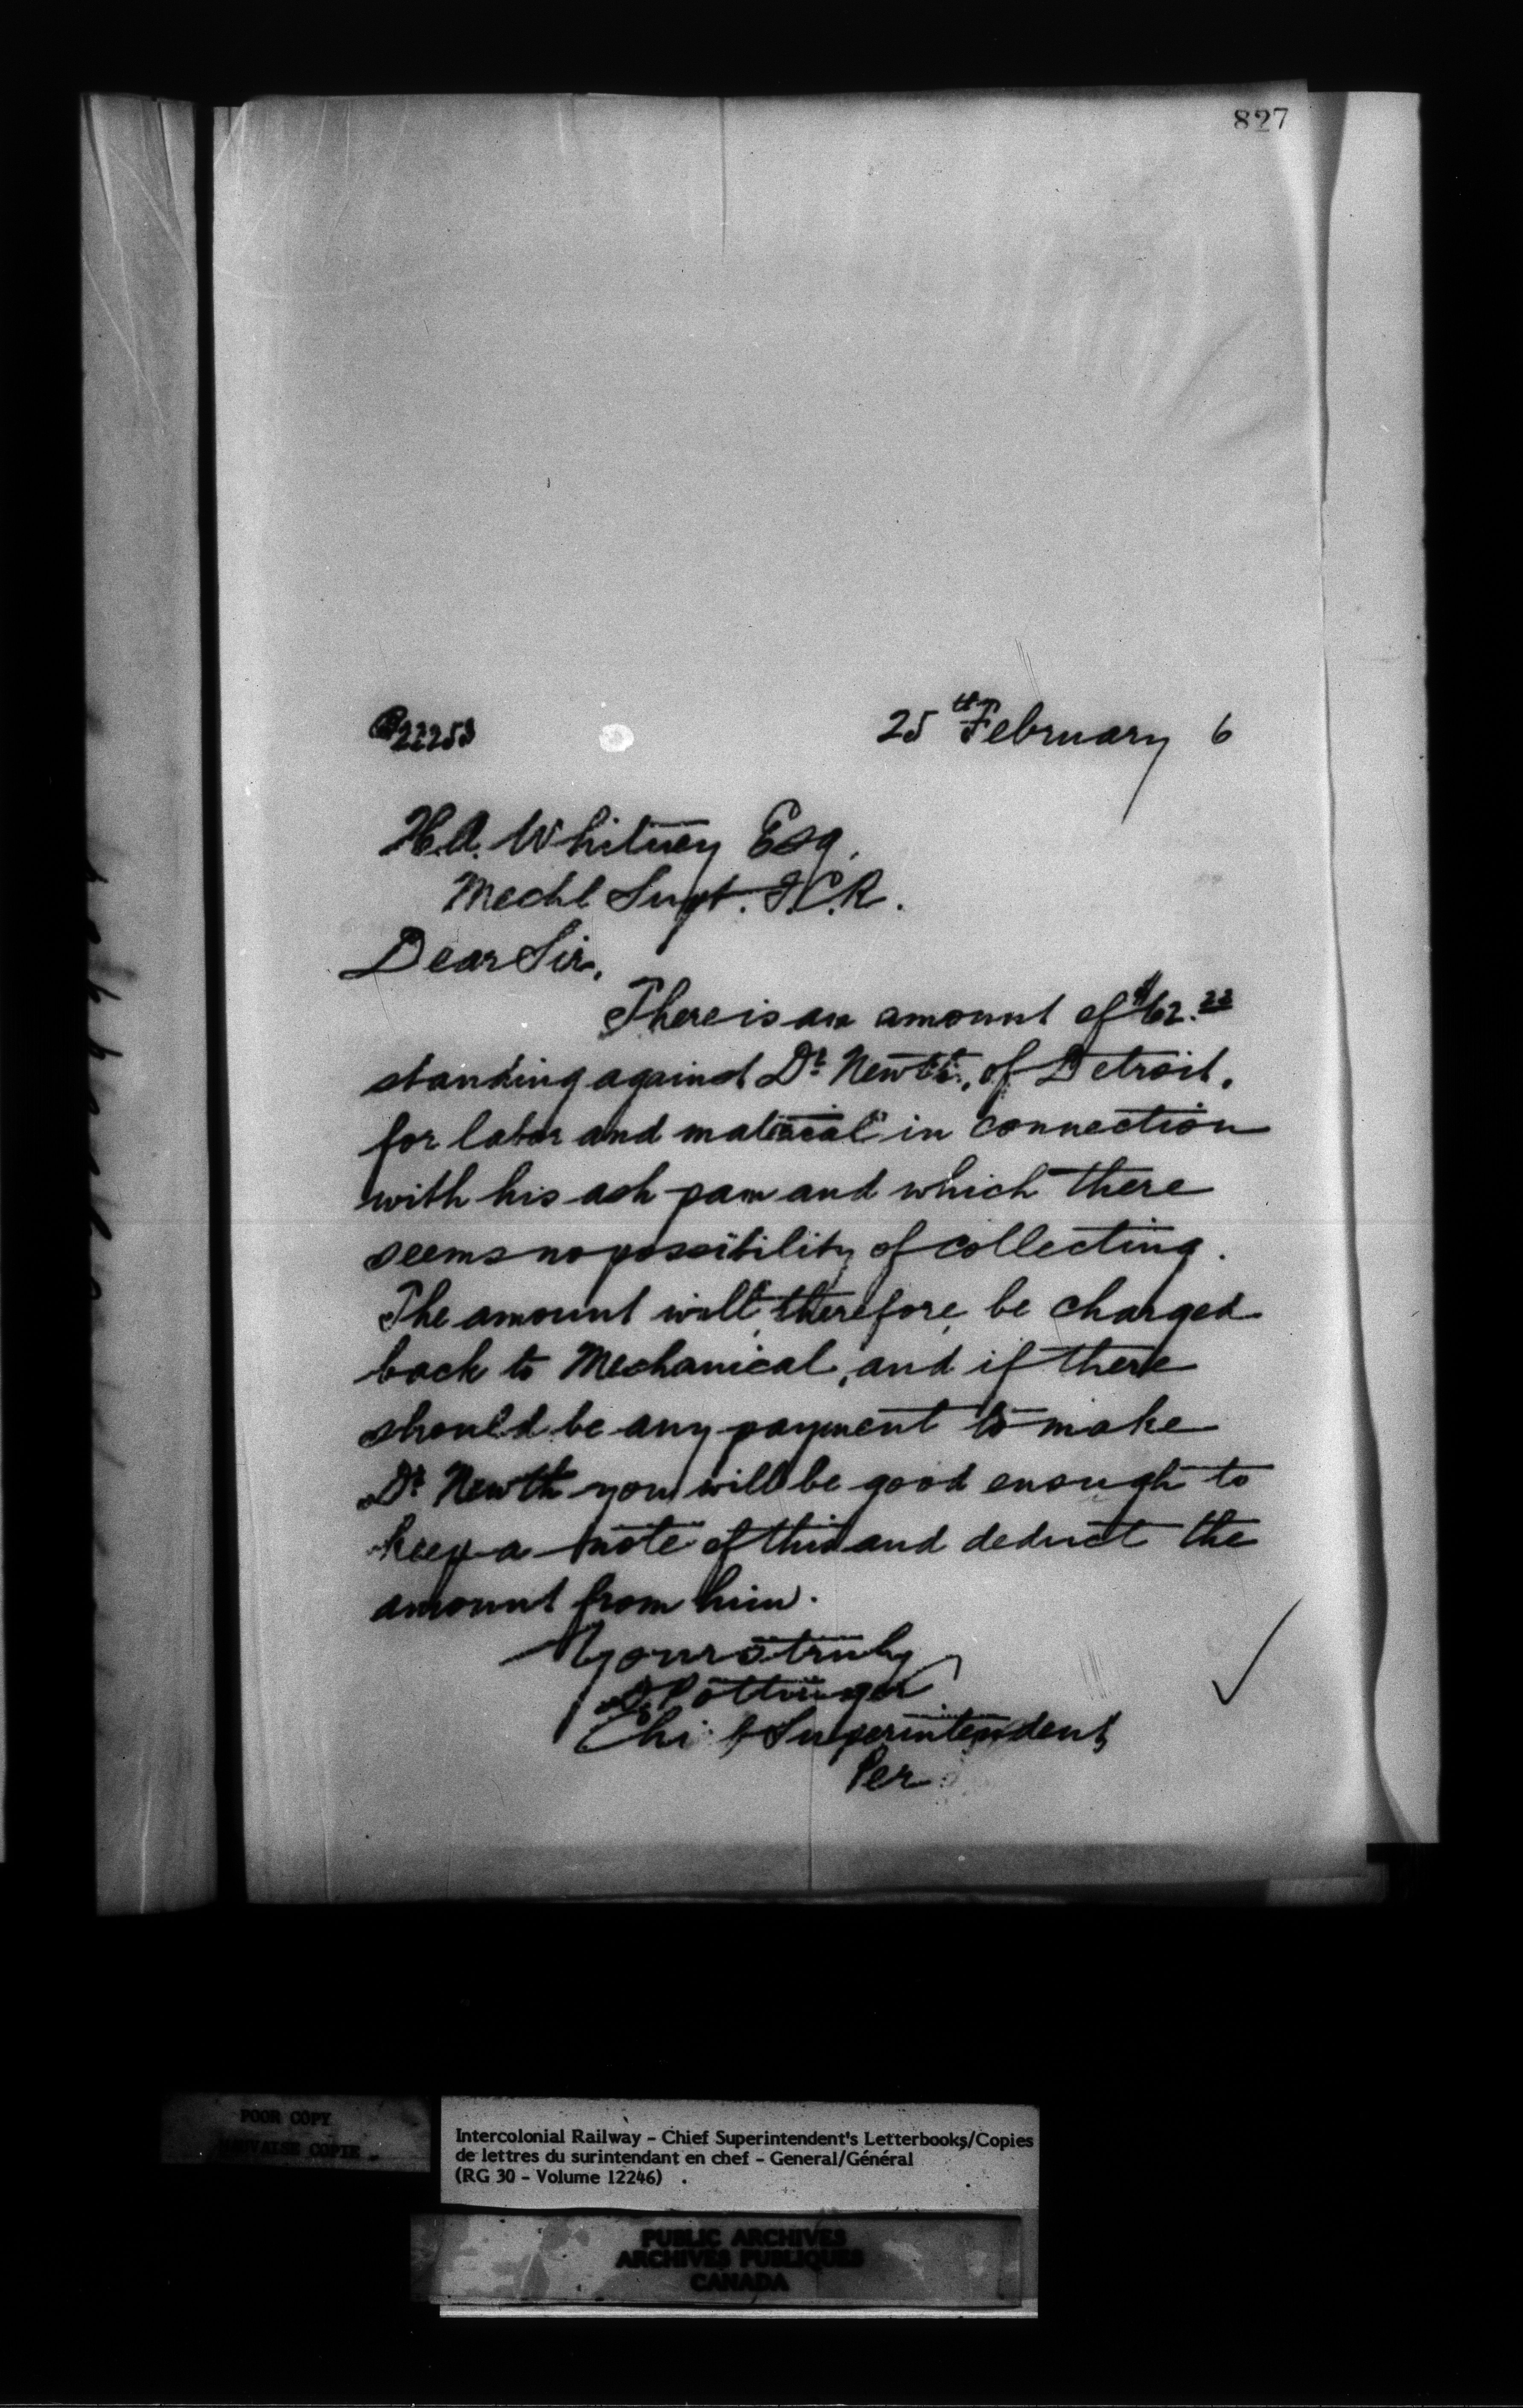 827
22253
25th February 6
H.A. Whitney Esq.
Mechl Supt. I.C.R.
Dear Sir,
There is an amount of $62.22
standing against Dr Newth, of Detroit,
for labor and material in connection
with his ash pan and which there
seems no possibility of collecting.
The amount will, therefore, be charged
back to Mechanical, and if there
should be any payment to make
Dr Newth you will be good enough to
keep a note of this and deduct the
amount from him.
Yours truly
D Pottinger
Chief Superintendent
Per
POOR COPY
MAUVAISE COPIE
Intercolonial Railway - Chief Superintendent's Letterbooks/Copies
de lettres du surintendant en chef - General/Général
(RG 30 - Volume 12246)
PUBLIC ARCHIVES
ARCHIVES PUBLIQUES
CANADA